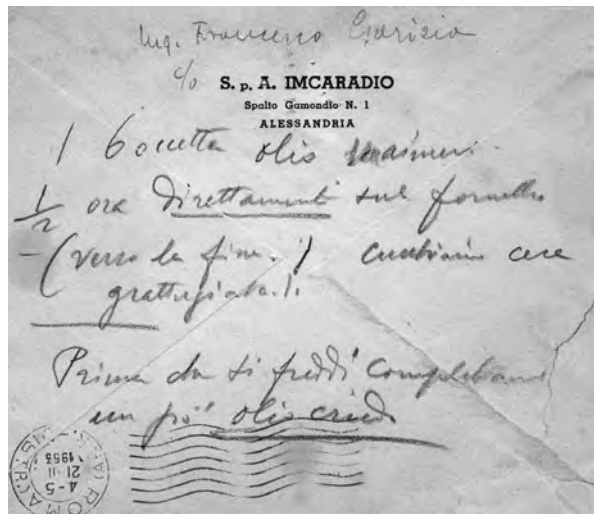 Ing. Francesco
c/o
S. p. A. IMCARADIO
Spalto Gamondio N. 1
ALESSANDRIA
1 boccetta olio
1/2 ora direttamente sul fornello
– (verso la fine.) cera
grattugiata.).
Prima che si freddi
un po' olio crudo
ROMA
4-5
21·II
1953